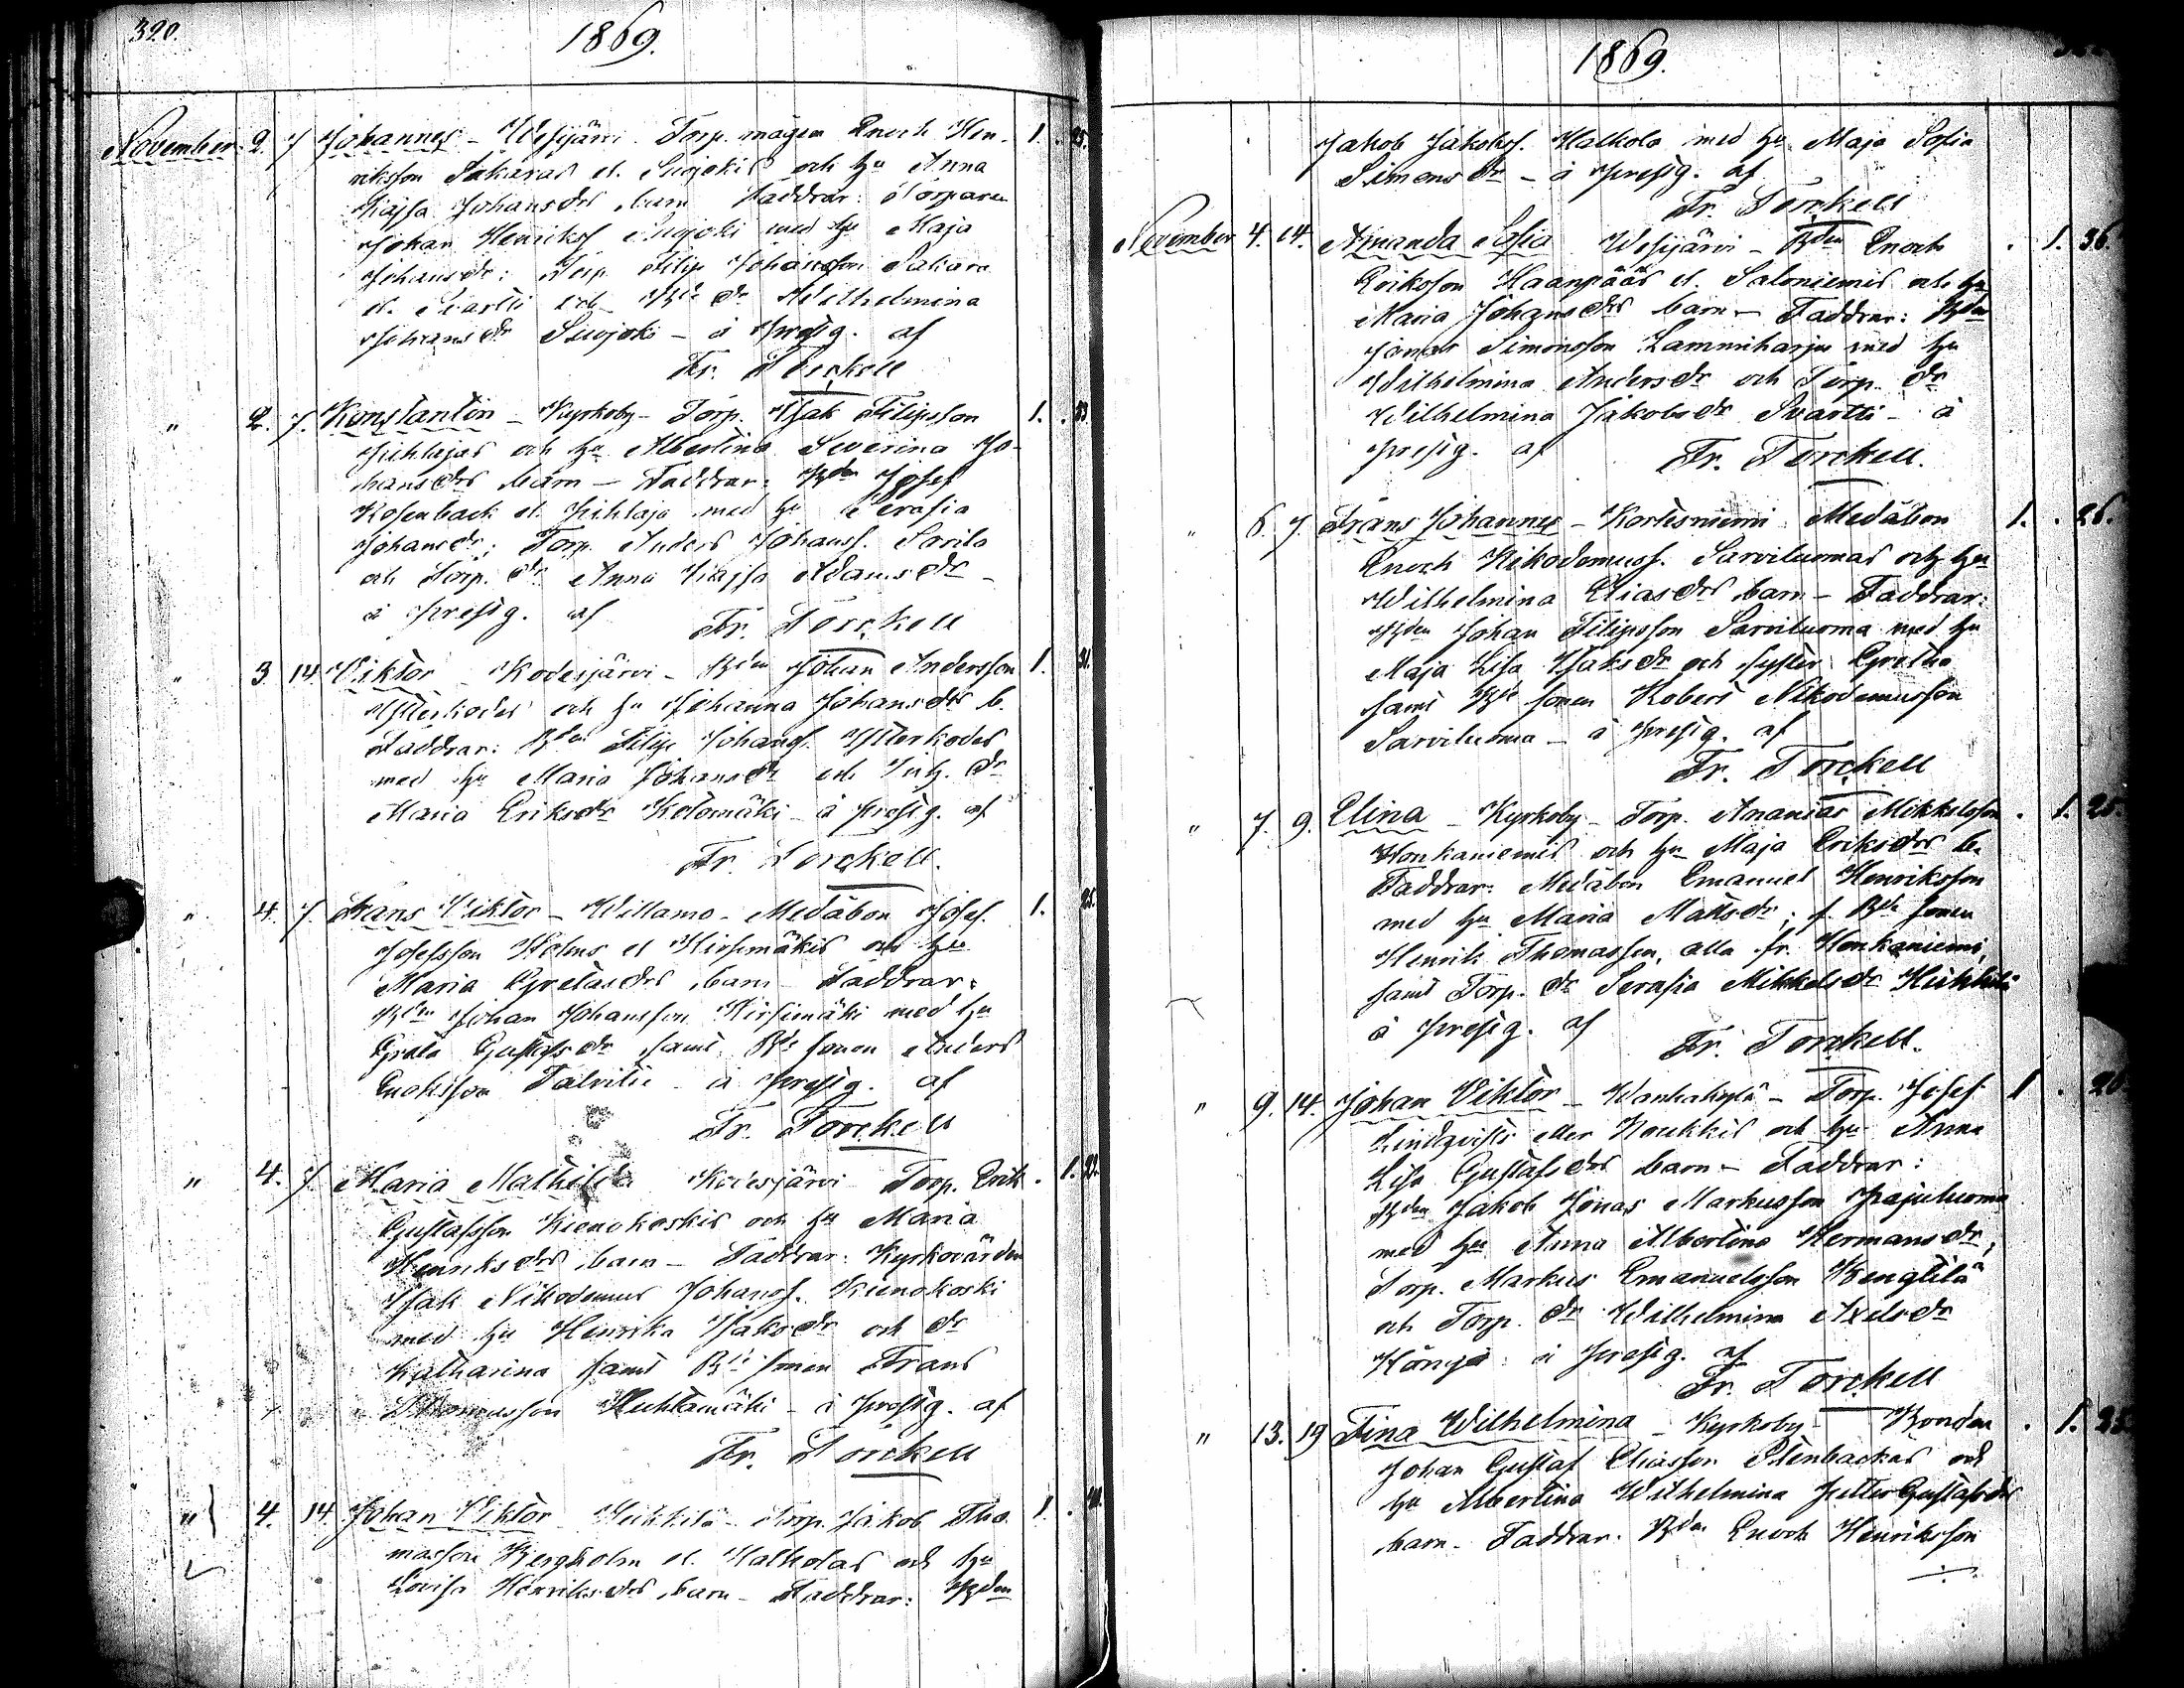 320.
1869.
November 2. 7 Johannes - Wesijärvi Torp. mågen Enoch Hen- 1. 25.
riksson Sakaras el. Suojokis och hu Anna
Kajsa Johansdrs barn Faddrar: Torparen
Johan Henriksf Suojoki med hu Maja
Johansdr: Torp. Filip Johansson Sakara
el. Svartti och Bde dr Wilhelmina
Johansdr Suojoki - à presig. af
Fr. Torckell
" 2. 7. Konstantin - Kyrkoby - Torp. Isak Filipsson 1. 23
Pihlajas och hu Albertina Severina Jo-
hansdrs barn - Faddrar: Bden Josef
Rosenback el. Pihlaja med hu Serafia
Johansdr; Torp. Anders Johansf. Savila
och Torp. dr Anna Kajsa Adamsdr -
à presig. af
Fr. Torckell
" 3 14. Viktor - Kodesjärvi - Bden Johan Andersson 1. 31.
Ytterkodes och hu Johanna Johansdrs b.
Faddrar: Bden Filip Johansf. Ytterkodes
med hu Maria Johansdr och Inh. dr
Maria Eriksdr Kotomäki - à presig. af
Fr. Torckell.
" 4. 7. Frans Viktor - Willamo - Medåbon Josef 1. 25.
Josefsson Holms el Hirsimäkis och hu
Maria Gretasdrs barn Faddrar:
Bden Johan Johansson Hirsimäki med hu
Greta Gustafsdr samt Bde sonen Anders
Enoksson Talvitie - à presig. af
Fr. Torckell
" 4. 7. Maria Mathilda Kodesjärvi Torp. Erik . 1. 23.
Gustafsson Kienokoskis och hu Maria
Henriksdrs barn - Faddrar: Kyrkovärden
Isak Nikodemus Johansf. Kienokoski
med hu Henrika Isaksdr och dr
Katharina samt Bde sonen Frans
Thomasson Huhtamäki - à presig. af
Fr. Torckell
" 4. 14. Johan Viktor - Heikkilä - Torp. Jakob Tho- 1. 40.
masson Bergholm el. Halkolas och hu
Lovisa Henriksdrs barn - Faddrar: Bden
1869.
Jakob Jakobsf. Halkola med hu Maja Sofia
Simonsdr - à presig. af
Fr. Torckell
November 4. 14. Amanda Sofia Wesijärvi - Bden Enoch . 1. 36.
Eriksson Haanpääs el. Saloniemis och hu
Maria Johansdrs barn - Faddrar: Bden
Jonas Simonsson Lamminharju med hu
Wilhelmina Andersdr och Torp. dr
Wilhelmina Jakobsdr Svartti - à
presig. af
Fr. Torckell.
" 6. 7. Frans Johannes - Kortesniemi Medåbon 1. . 26.
Enoch Nikodemusf. Sarviluomas och hu
Wilhelmina Eliasdrs barn - Faddrar:
Bden Johan Filipsson Sarviluoma med hu
Maja Lisa Isaksdr och syster Gretha
samt Bde sonen Robert Nikodemusson
Sarviluoma - à presig. af
Fr. Torckell
" 7. 9. Elina - Kyrkoby - Torp. Ananias Mikkelsson . 1. 25.
Honkaniemis och hu Maja Eriksdrs b.
Faddrar: Medåbon Emanuel Henriksson
med hu Maria Mattsdr; f. Bde sonen
Henrik Thomasson, alla fr. Honkaniemi,
samt Torp. dr Serafia Mikkelsdr Heikkilä
à presig. af
Fr. Torckell.
" 9. 14. Johan Viktor - Wanhakylä - Torp. Josef 1 .
Lindqvists eller Koukkis och hu Anna
Lisa Gustafsdrs barn - Faddrar:
Bden Jakob Jonas Markusson Pajuluoma
med hu Anna Albertina Hermansdr;
Torp. Markus Emanuelsson Kengtilä
och Torp. dr Wilhelmina Axelsdr
à presig. af
Fr. Torckell
" 13. 19 Fina Wilhelmina - Kyrkoby - Bonden . 1.
Johan Gustaf Eliasson Stenbackas och
hu Albertina Wilhelmina Petter Gustafsdrs
barn - Faddrar: Bden Enoch Henriksson